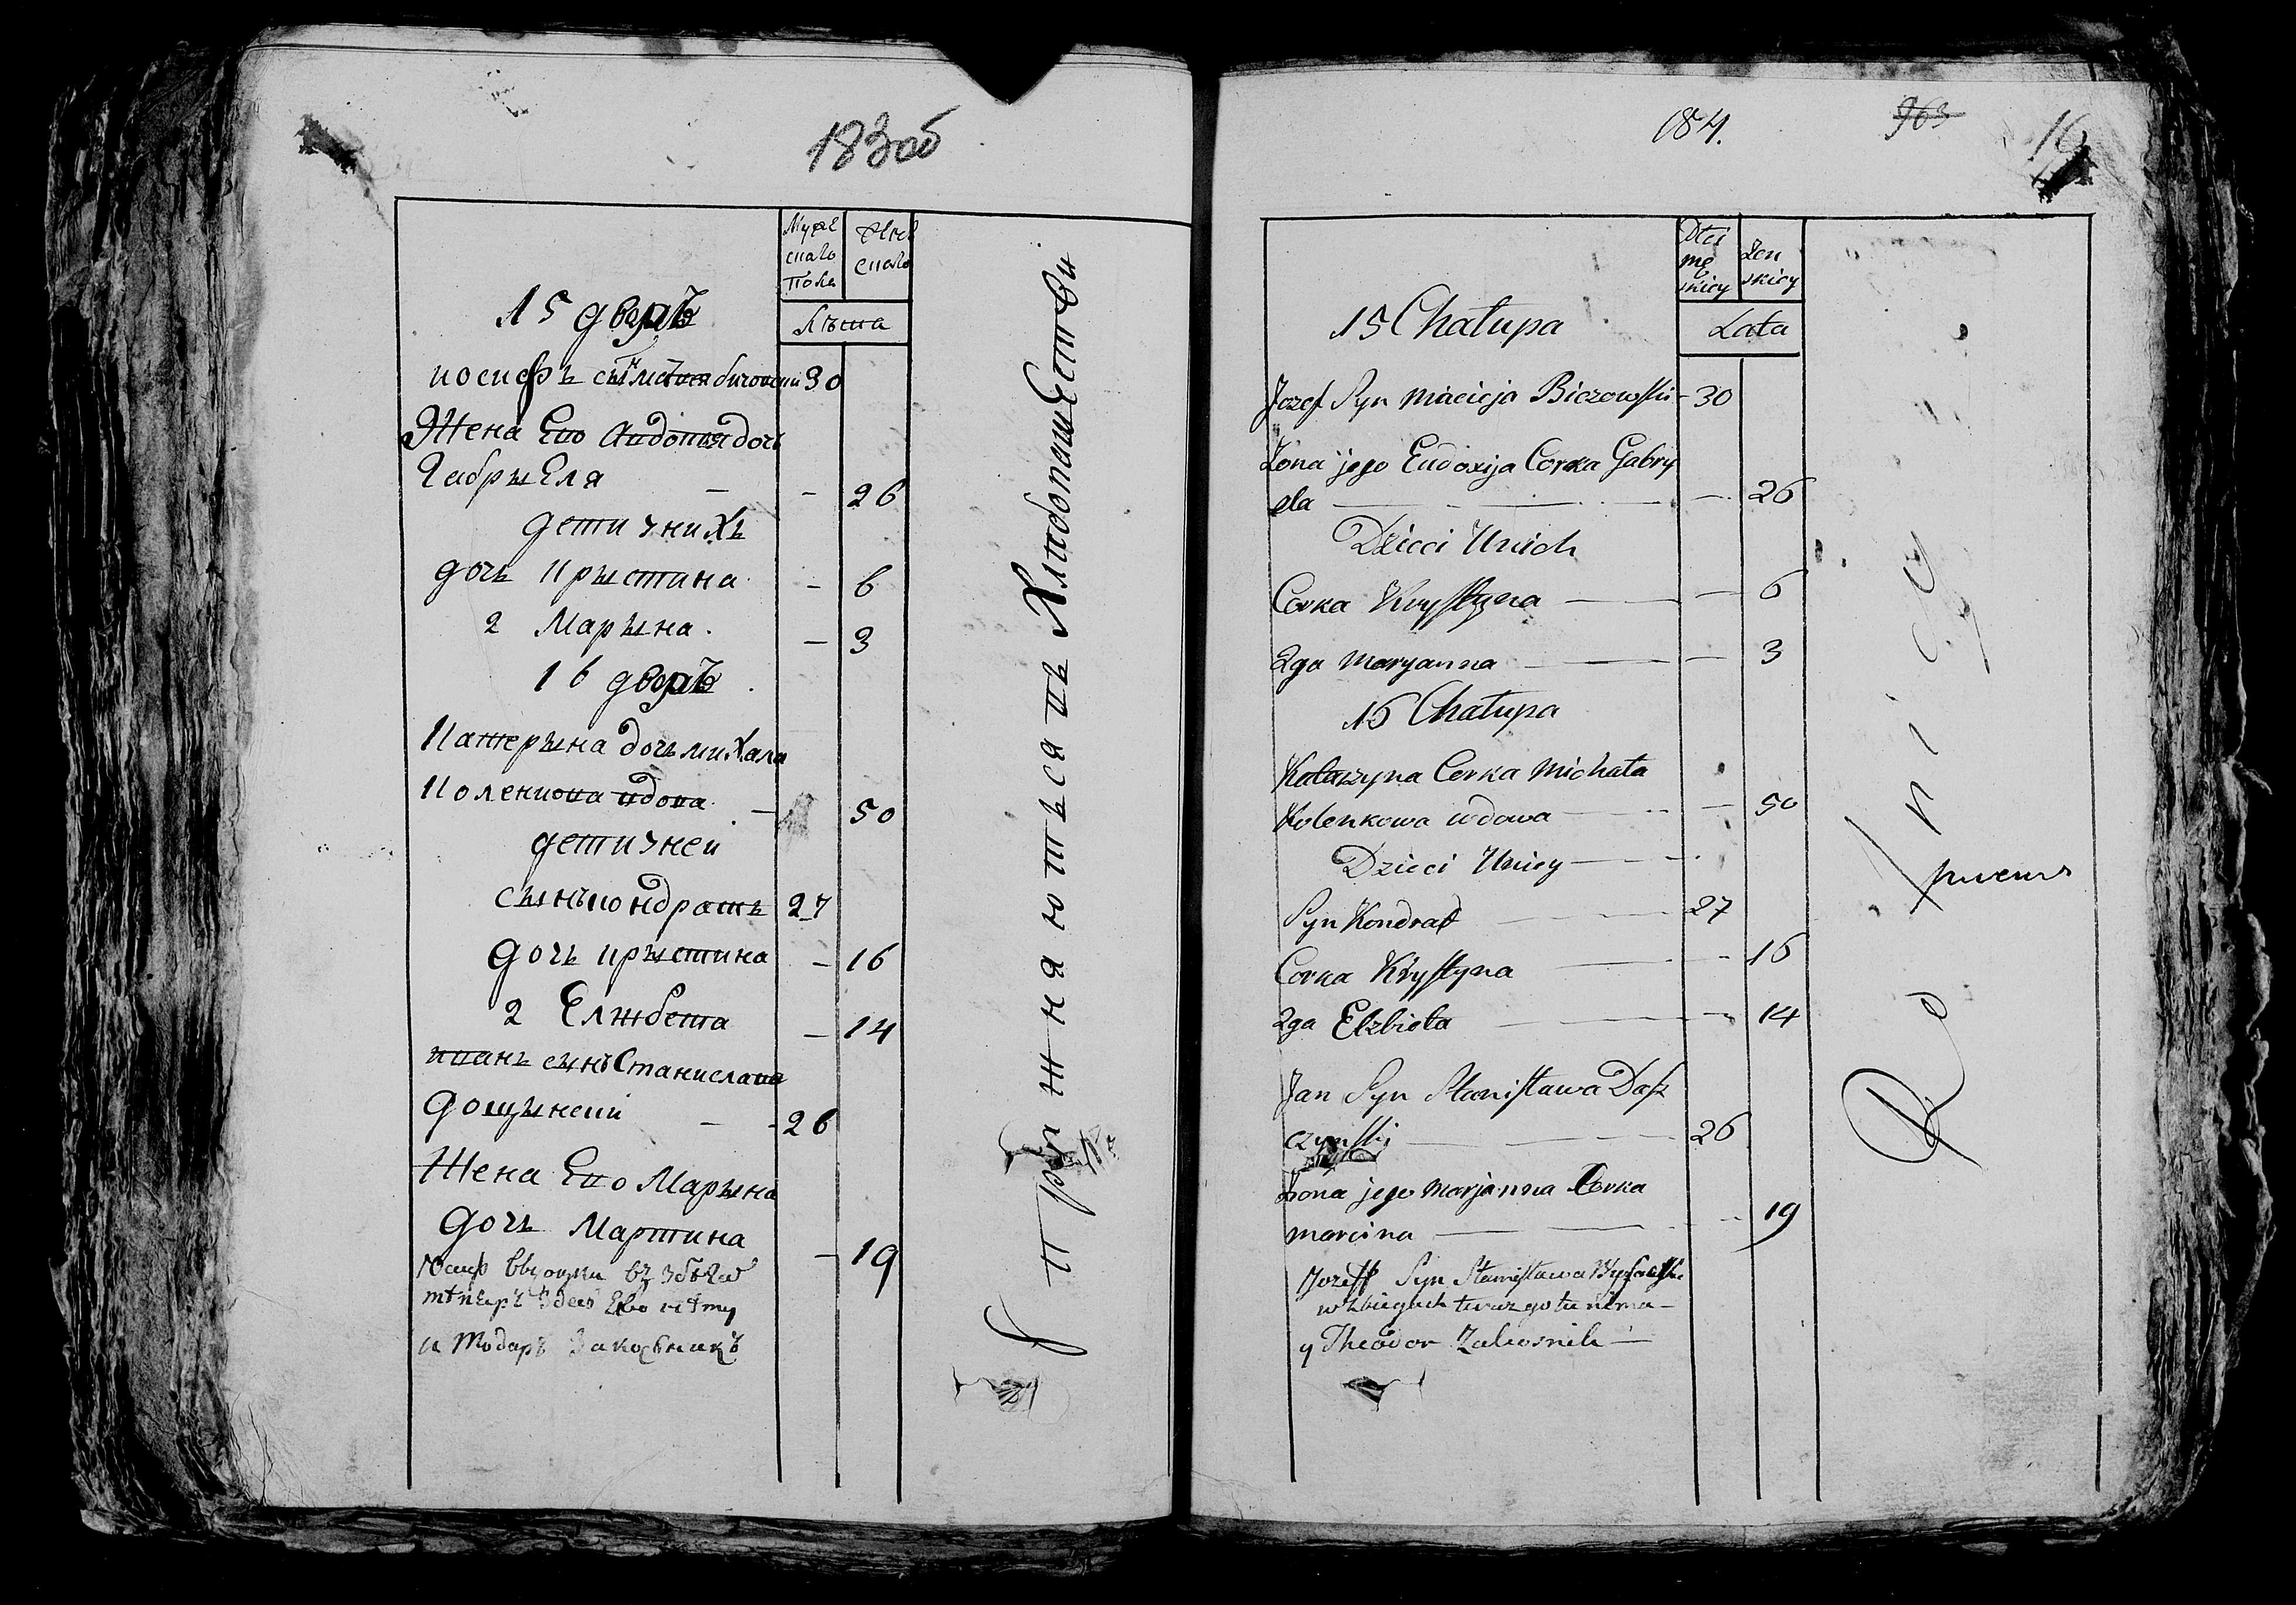 183об
Муже
скаго
пола
женс
скаго
Лѣта
15 дворъ
иосифъ сынъ мацѣя бичовский 30
Жена Его Авдотия дочь
Габрыеля - - 26
дети у них
дочь крыстина - 6
2 Марына - 3
16 дворъ
Катерына дочь михала
Коленкова вдова - 50
дети у ней
сынъ кондратъ 27
дочь крыстина - 16
2 Елжбета - 14
иванъ сынъ Станислава
дощынский - - 26
Жена Его Марына
дочь Мартина - 19
Юсиф высоцки въ збегах
тепѣръ здесь Ево нѣту
и Тодаръ Закосникъ
Упражняются в Хлебопашестви
184.
963
16
Płci
mę
skiey
Zen
skiey
Lata
15 Chałupa
Jozef Syn Macieja Biczowski - 30
Zona jego Eudoxija Corka Gabry
ela - - - 26
Dzieci Unich
Corka Krystyna - - 6
2ga Maryanna - - 3
16 Chałupa
Katarzyna Corka Michała
Kolenkowa wdowa - - 50
Dzieci Uniey - -
Syn Kondrat - 27
Corka Krystyna - - 16
2ga Elzbieta - - 14
Jan Syn Stanisława Dasz
czynski - - 26
Zona jego Marjanna Corka
Marcina - - 19
Jozeff Syn Stanisława Wysocki
w zbiegach teraz go tu nima -
y Theodor Zakosnik -
Rolnicy